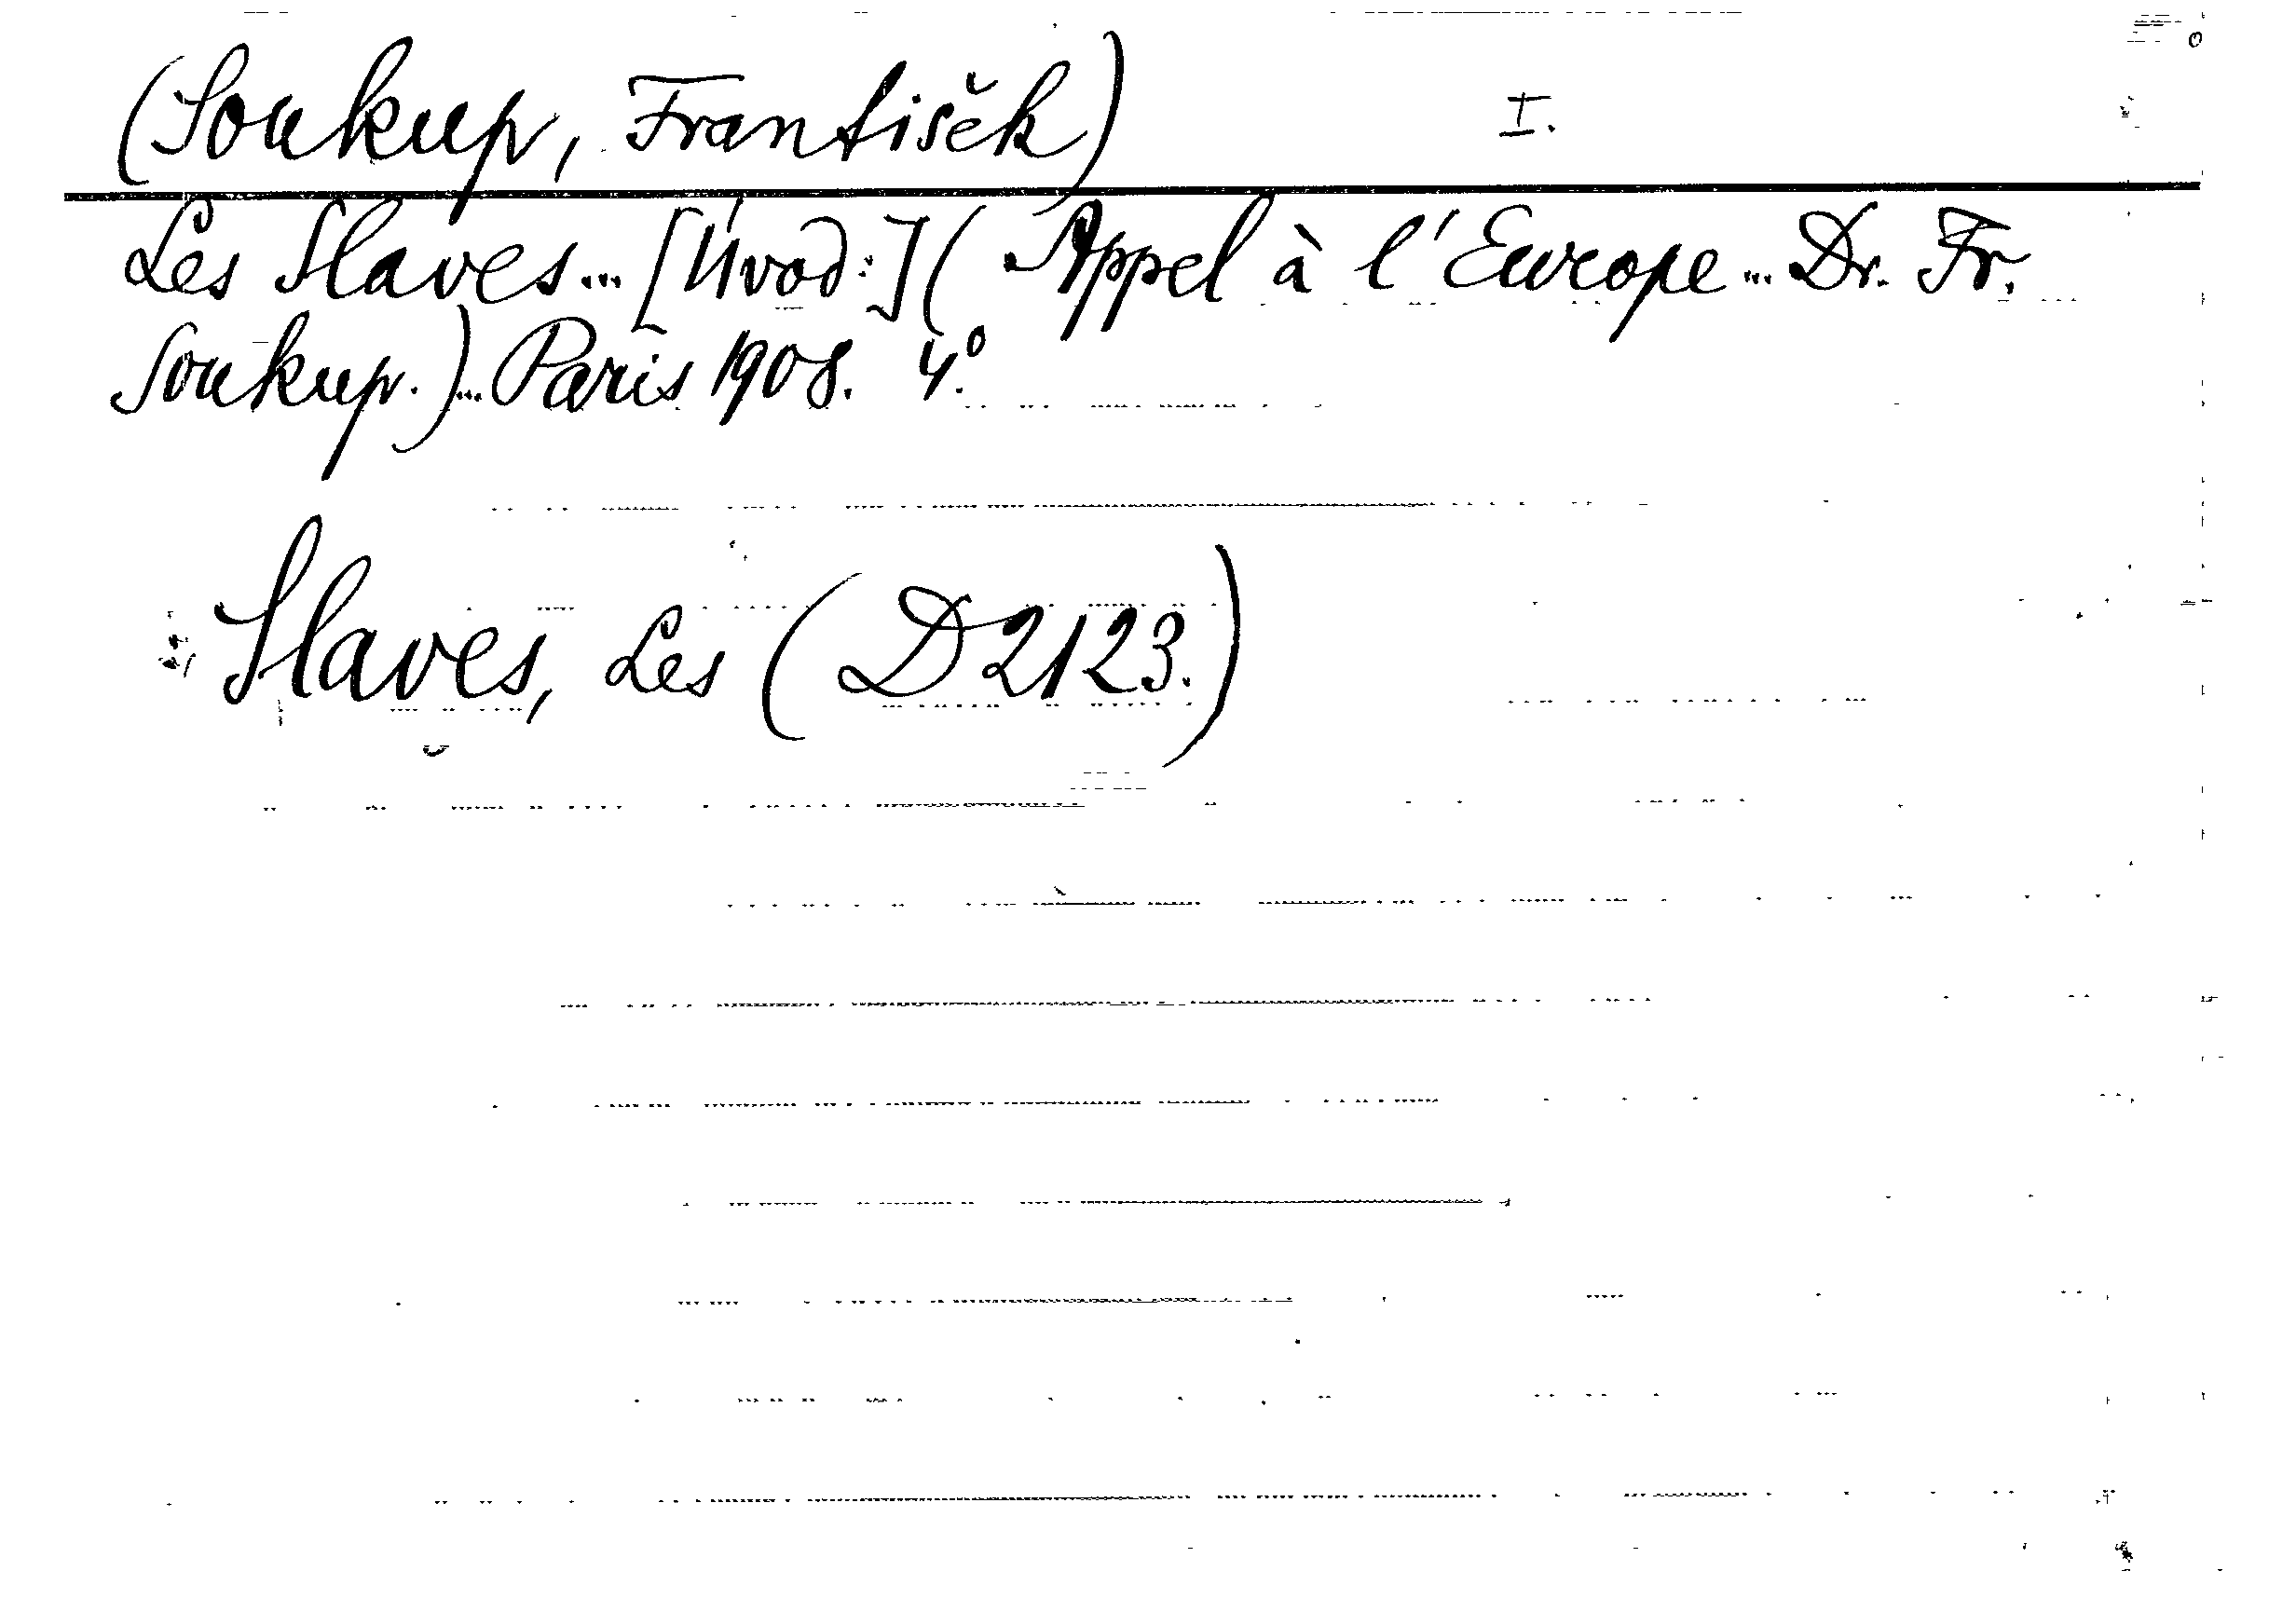 (Soukup, František) I.
Les Slaves... [Úvod:] (Appel à l'Europe... Dr. Fr.
Soukup.)... Paris 1908. 4°.
Slaves, Les (D 2123.)